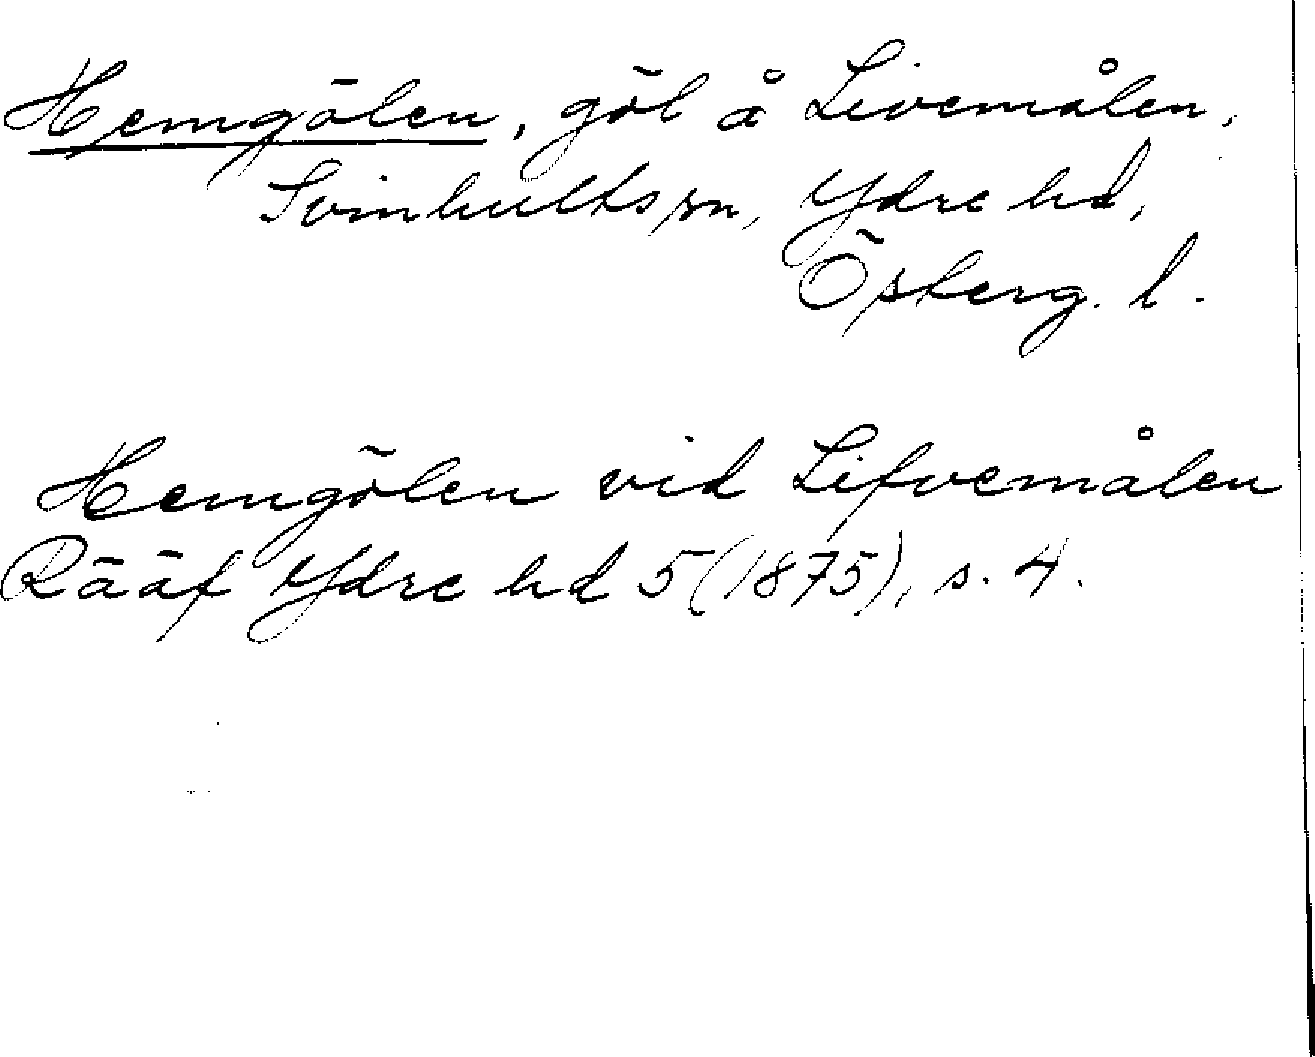 Hemgölen, göl å Livemålen,
Svinhults sn, Ydre hd,
Österg. l.
Hemgölen vid Lifvemålen
Rääf Ydre hd 5 (1875), s. 4.